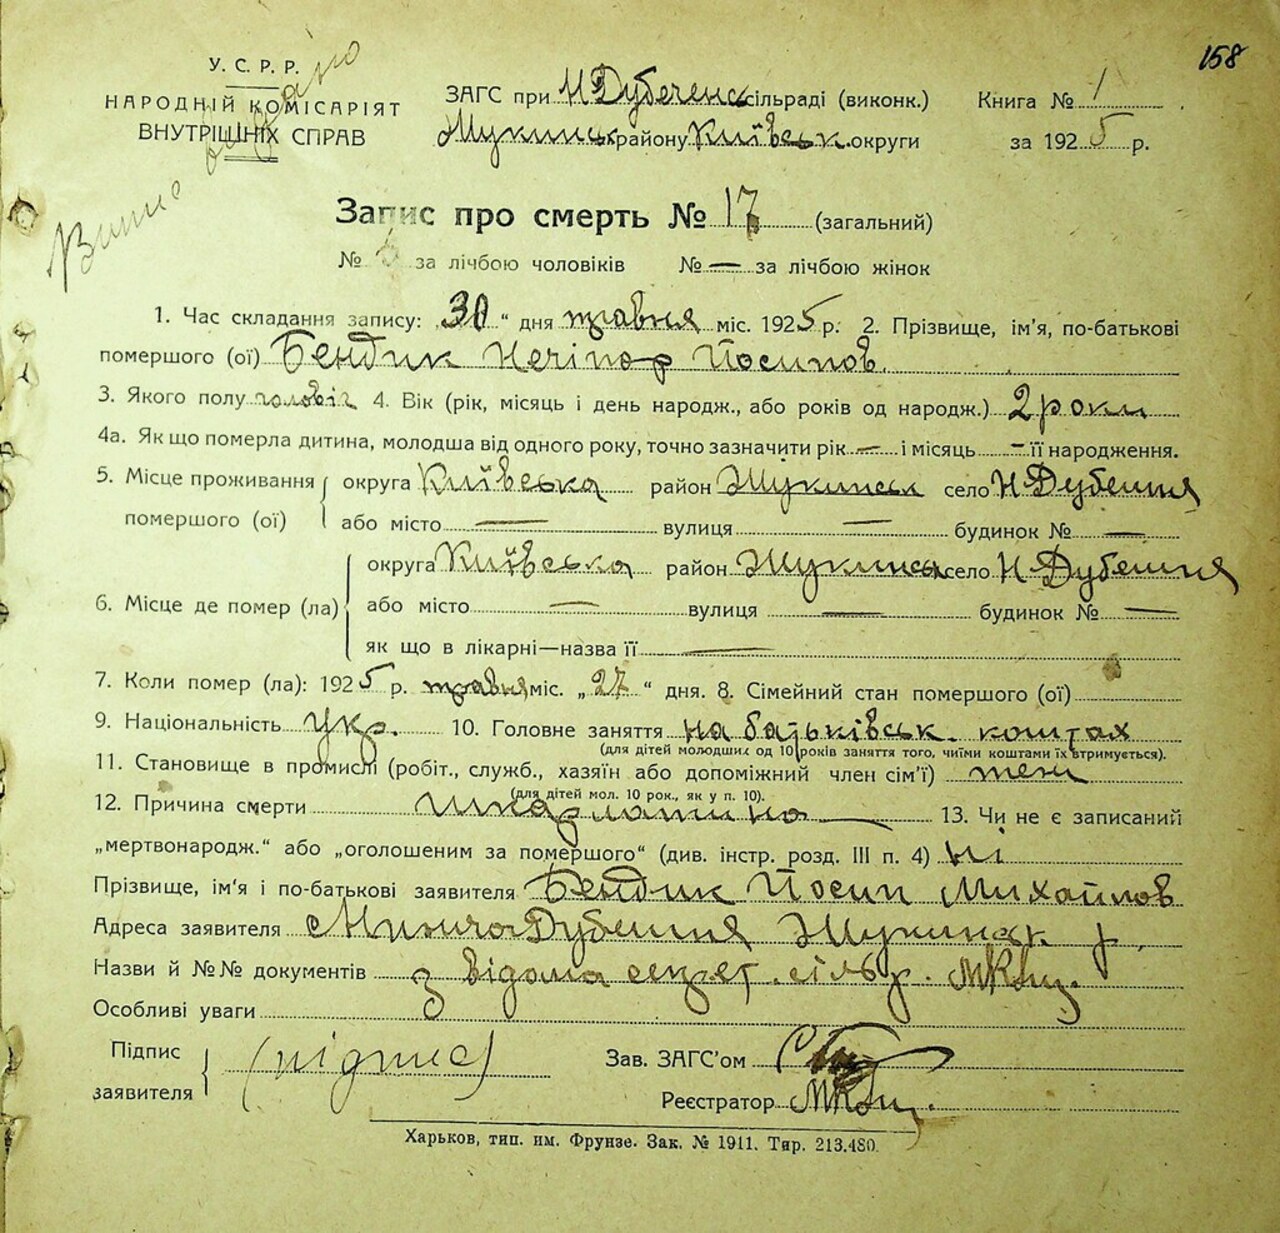 158
У. С. Р. Р.
НАРОДНІЙ КОМІСАРІЯТ
ВНУТРІШНІХ СПРАВ
ЗАГС при Н Дубеченс сільраді (виконк.)
району Київськ. округи
Книга № 1
за 1925 р.
Запис про смерть № 17 (загальний)
№ за лічбою чоловіків № — за лічбою жінок
1. Час складання запису: „30“ дня травня міс. 1925 р. 2. Прізвище, ім'я, по-батькові
помершого (ої) Бендик Нечіпор Йосипов.
3. Якого полу чоловіч 4. Вік (рік, місяць і день народж., або років од народж.) 2 роки
4а. Як що померла дитина, молодша від одного року, точно зазначити рік — і місяць — її народження.
5. Місце проживання округа Київська район село Н Дубешня
помершого (ої) або місто — вулиця — будинок № —
округа Київська район село Н Дубешня
6. Місце де помер (ла) або місто — вулиця — будинок № —
як що в лікарні—назва її —
7. Коли помер (ла): 1925 р. травня міс. „27“ дня. 8. Сімейний стан помершого (ої)
9. Національність укр. 10. Головне заняття на батьківськ. коштах
(для дітей молодших од 10 років заняття того, чиїми коштами їх втримується).
11. Становище в промислі (робіт., служб., хазяїн або допоміжний член сім'ї) теж
(для дітей мол. 10 рок., як у п. 10).
12. Причина смерти Шкарлатина — 13. Чи не є записаний
„мертвонародж.“ або „оголошеним за помершого“ (див. інстр. розд. III п. 4) ні
Прізвище, ім'я і по-батькові заявителя Бендик Йосип Михайлов
Адреса заявителя Дубешня р.
Назви й №№ документів з відома секрет. сільр.
Особливі уваги
Підпис
заявителя (підпис)
Зав. ЗАГС'ом
Реєстратор
Харьков, тип. им. Фрунзе. Зак. № 1911. Тир. 213.480.